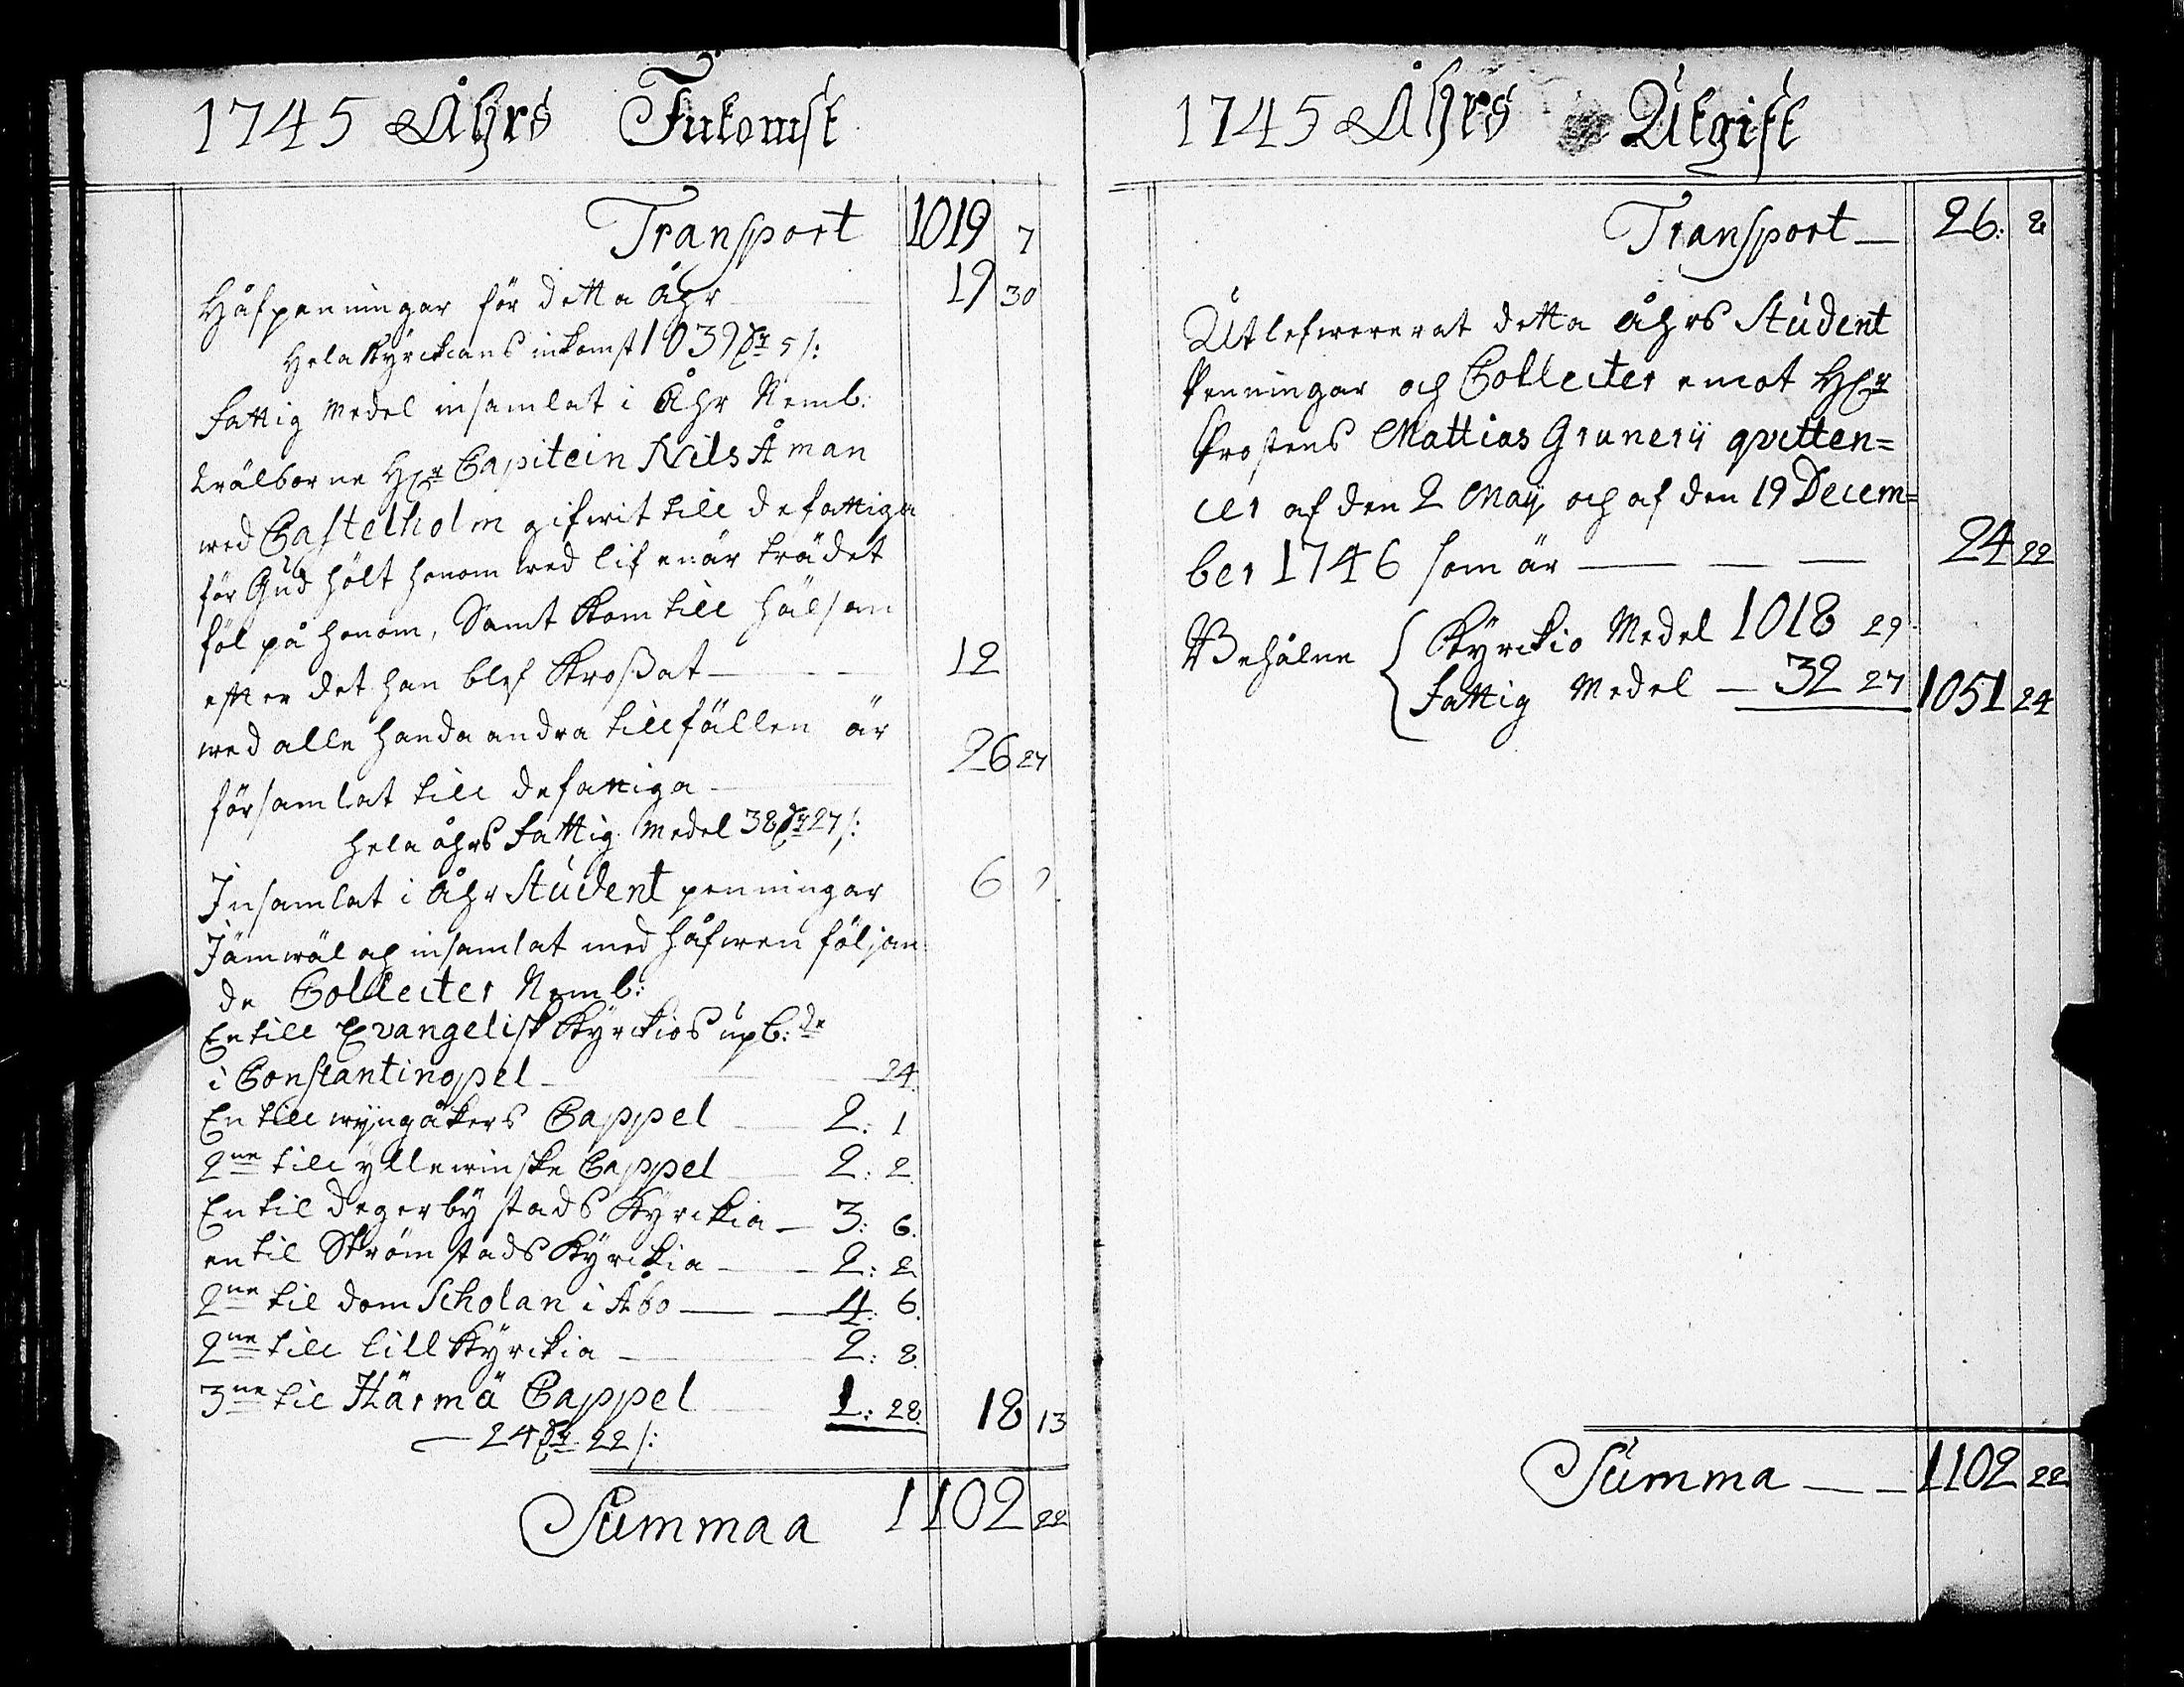 1745 Åhrs Inkomst
Transport 1019 7
Håfpenningar för detta Åhr 19 30
Hela Kyrckians inkomst 1039 Dr 5/:
Fattig Medel insamlat i Åhr Neml:
wälborne H:r Capitein Nils Åman
wed Castelholm gifwit till de fattiga
för Gud hölt honom wed lif enär trädet
föl på honom, Samt kom till hälsan
efter det han blef kroßat 12
wed alle handa andra tillfällen är
församlat till de fattiga 26 27
hela åhrs Fattig Medel 38 Dr 27/:
Insamlat i Åhr Student penningar 6 9
Jämwäl och insamlat med håfwen följan
de Collecter Neml:
En till Evangelisk Kyrckios upb:de
i Constantinopel 24.
En till wyngåkers Cappel 2: 1
2ne till yllewinske Cappel 2: 2
En til Degerby stads Kyrckia 3: 6.
en til Strömstads Kyrckia 2: 2
2ne til Dom Scholan i Åbo 4: 6.
2ne till lillkyrckia 2: 8.
3ne til Härmä Cappel 1: 28. 18 13
24 Dr 22/:
Summa a 1102 22
1745 Åhrs Utgift
Transport 26: 8
Utlefwererat detta åhrs Student
Penningar och Collecter emot H:r
Prostens Mattias Grunerij qvitten=
cer af den 2 Maij och af den 19 Decem=
ber 1746 som är 24 22
Behålne { Kyrckio Medel 1018 29.
Fattig Medel 32 27 1051 24
Summa 1102 22